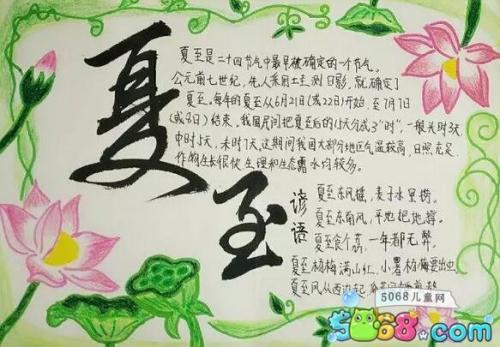 夏至
夏至是二十四节气中最早被确定的一个节气。
公元前七世纪,先人采用土圭测日影,就确定了
夏至。每年的夏至从6月21日(或22日)开始,至7月7日
(或8日)结束。我国民间把夏至后的15天分成3"时",一般头时3天
中时5天,末时7天这期间我国大部分地区气温较高,日照充足
作物生长很快,生理和生态需水均较多。
谚语
夏至东风摇,麦子水里捞。
夏至东南风,平地把船撑。
夏至食个荔,一年都无弊。
夏至杨梅满山红,小暑杨梅要出虫。
夏至风从西边起,
5068儿童网
5068.com